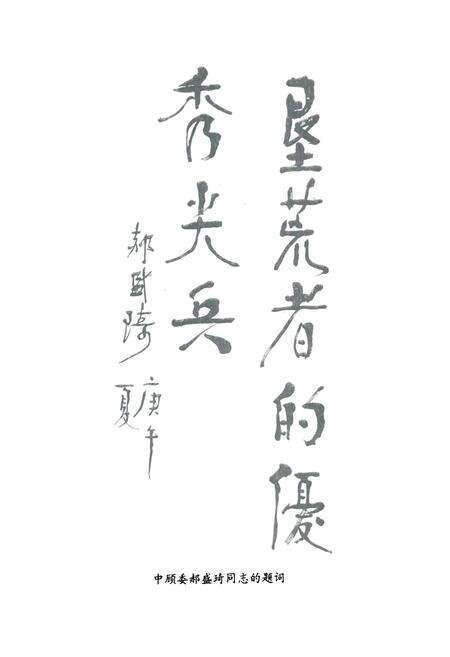 垦荒者的優
秀尖兵
郝盛琦
庚午
夏
中顾委郝盛琦同志的题词